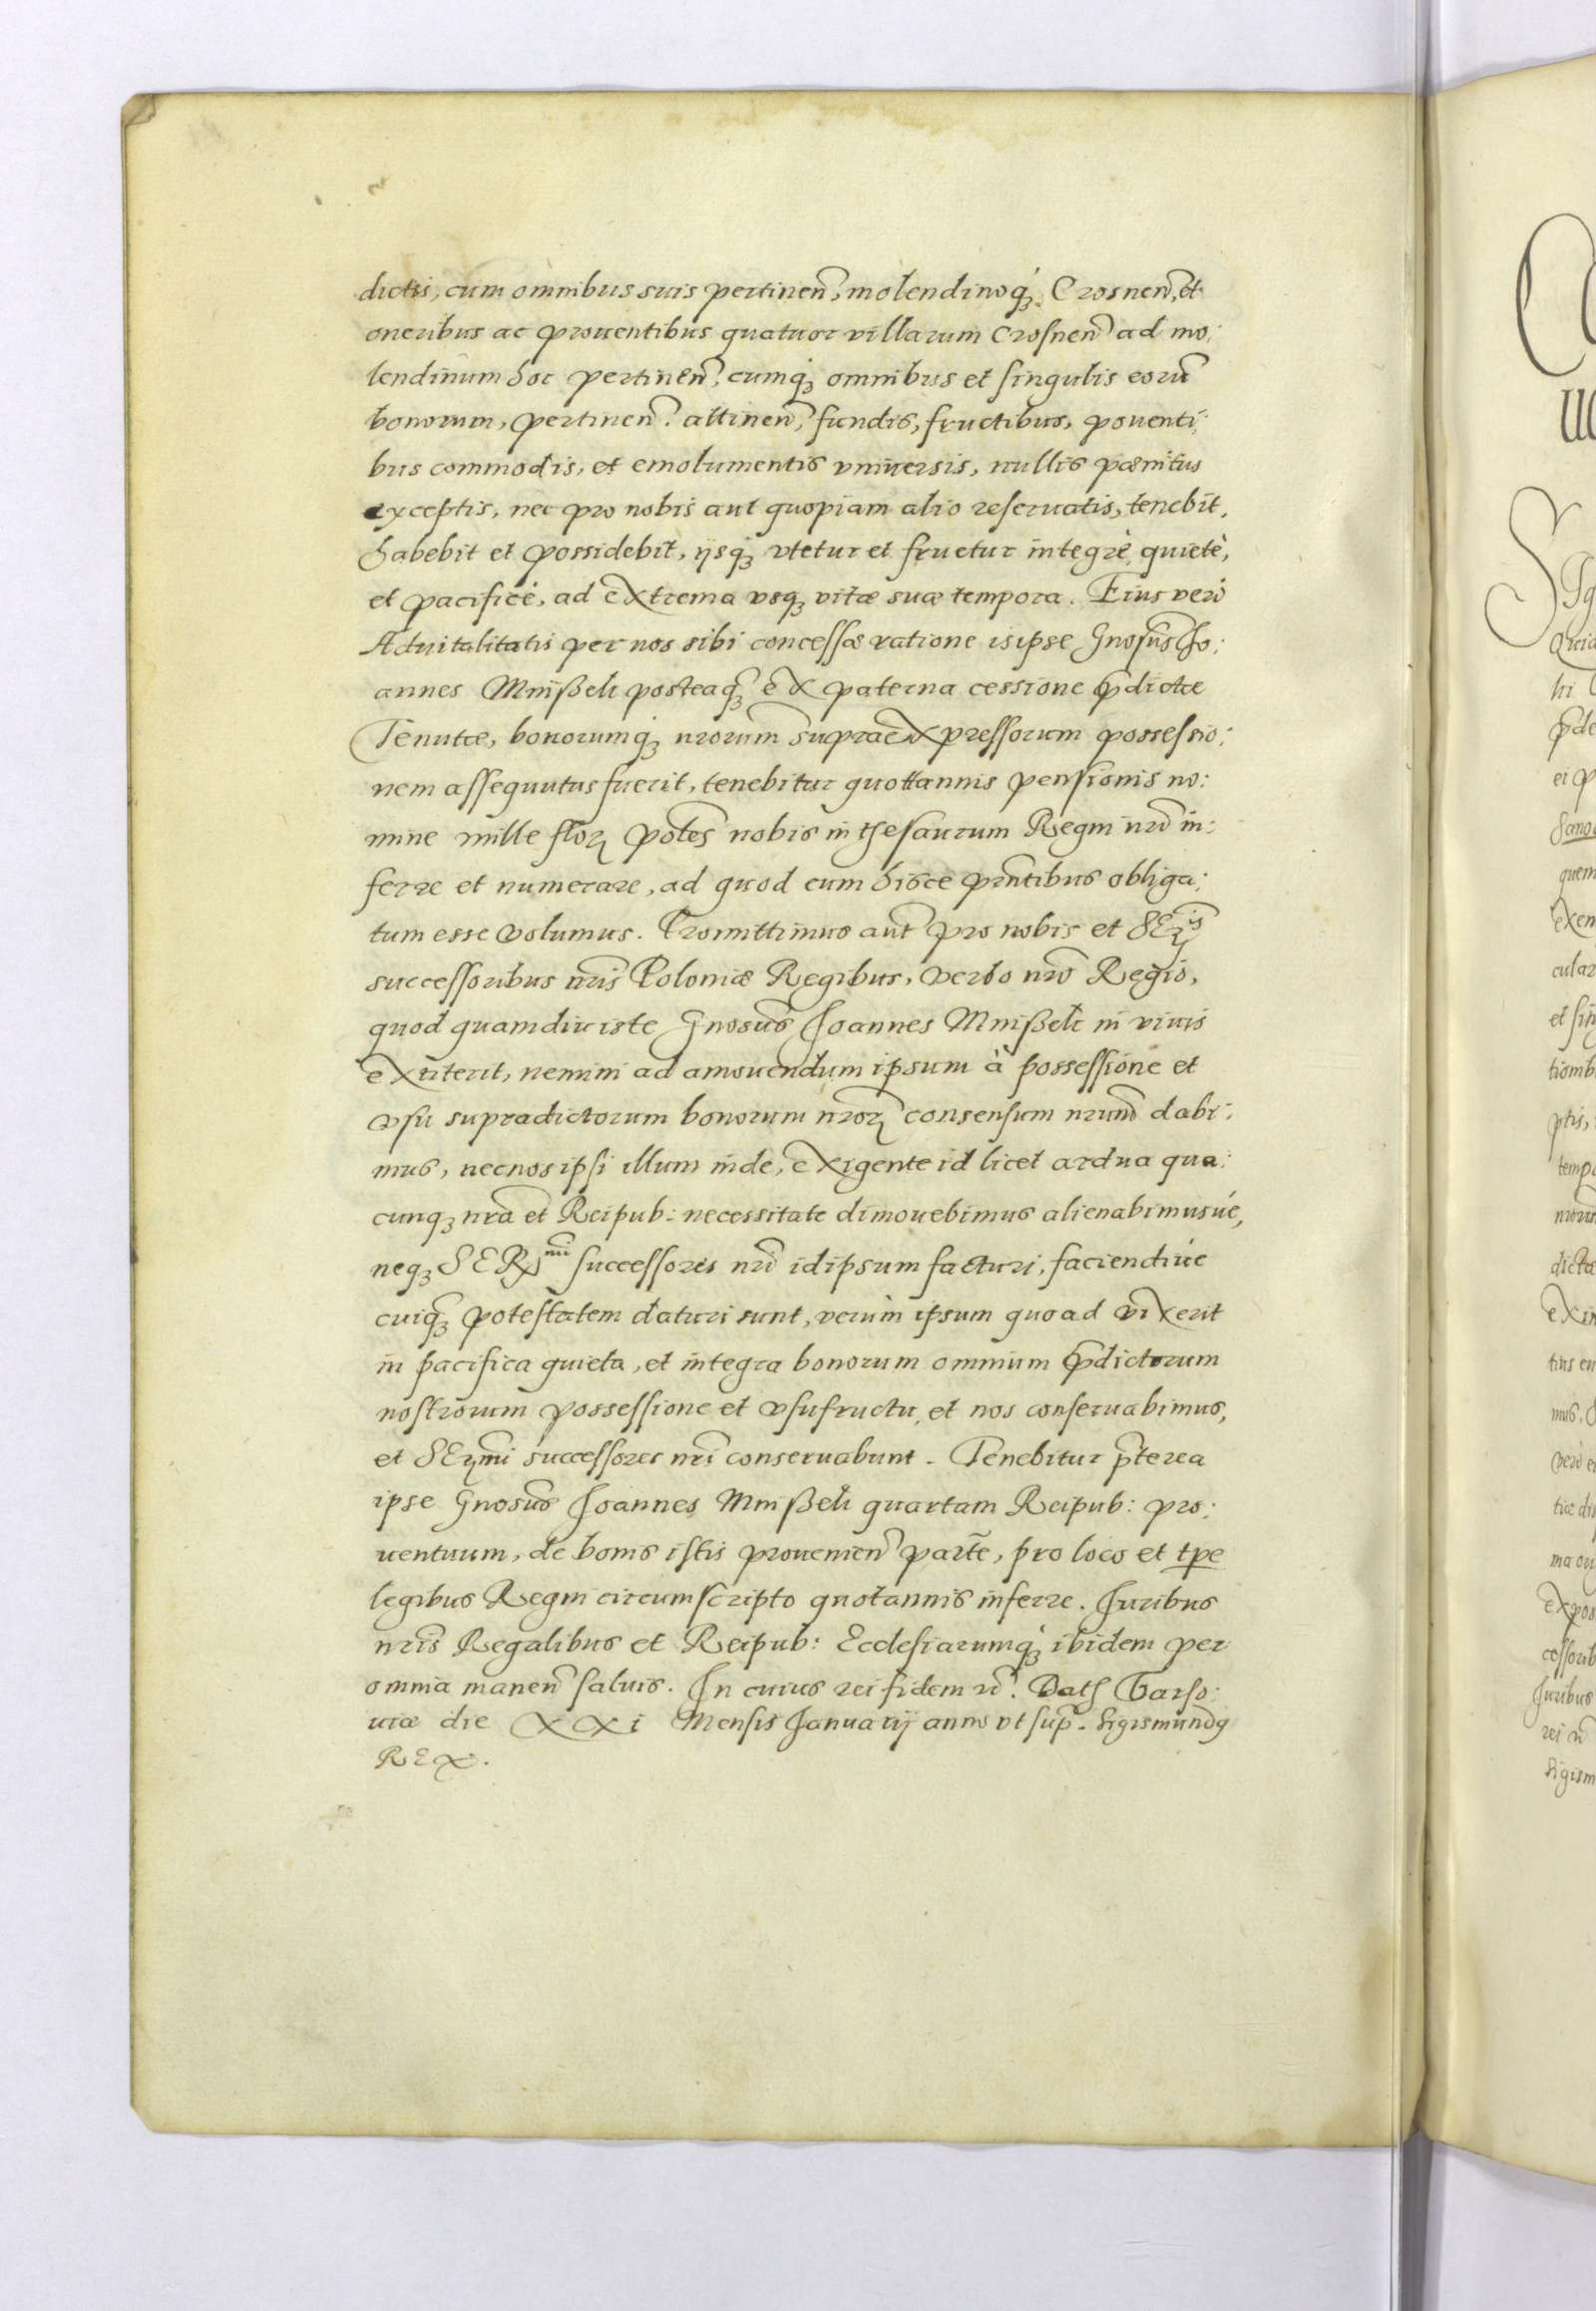 dictis, cum omnibus suis pertinen̄, molendinoq́ꝫ Crosnen̄, et
oneribus ac prouentibus quatuor villarum Crosnen̄ ad mo:
lendinum hoc pertinen̄, cumq́ꝫ omnibus et singulis eorū
bonorum, pertinen̄. attinen̄, fundis, fructibus, ꝓuenti:
bus commodis, et emolumentis vniuersis, nullis pænitus
exceptis, nec pro nobis aut quopiam alio reseruatis, tenebit,
habebit et possidebit, ijsq́ꝫ vtetur et fruetur integrè, quietè,
et pacificè, ad extrema vsqꝫ vitæ suæ tempora. Eius verò
Aduitalitatis per nos sibi concessæ ratione is ipse Gnosūs Jo:
annes Mnißek posteaq̄ꝫ ex paterna cessione p̄dictæ
Tenutæ, bonorumq́ꝫ nrorum̄ supraexpressorum possessio:
nem assequutus fuerit, tenebitur quottannis pensionis no:
mine mille floꝝ poles̄ nobis in thesaurum Regni nrī in:
ferre et numerare, ad quod eum hisce pn̄tibus obliga:
tum esse volumus. Promittimus aut̄ pro nobis et SEꝝis̄
successoribus nrīs Poloniæ Regibus, verbo nrō Regio,
quod quamdiu iste Gnosūs Joannes Mnißek in viuis
extiterit, nemini ad amouendum ipsum à possessione et
vsu supradictorum bonorum nroꝝ̄ consensum nrum̄ dabi:
mus, nec nos ipsi illum inde, exigente id licet ardua qua:
cunqꝫ nrā et Reipub: necessitate dimouebimus alienabimusúe,
neqꝫ SERmī successores nrī idipsum facturi, faciendiúe
cuiq̄ꝫ potestatem daturi sunt, verùm ipsum quoad vixerit
in pacifica quieta, et integra bonorum omnium p̄dictorum
nostrorum possessione et vsufructu, et nos conseruabimus,
et SEꝝmī successores nrī conseruabunt. Tenebitur p̄terea
ipse Gnosūs Joannes Mnißek quartam Reipub: pro:
uentuum, de bonis istis prouenien̄ partē, pro loco et tꝑe
legibus Regni circumscripto quotannis inferre. Juribus
nrīs Regalibus et Reipub: Ecclesiarumq́ꝫ ibidem per
omnia manen̄ saluis. In cuius rei fidem rē. Dath Varso:
uiæ die XXI Mensis Januarij anno vt sup̄. Sigismundꝯ
REX.